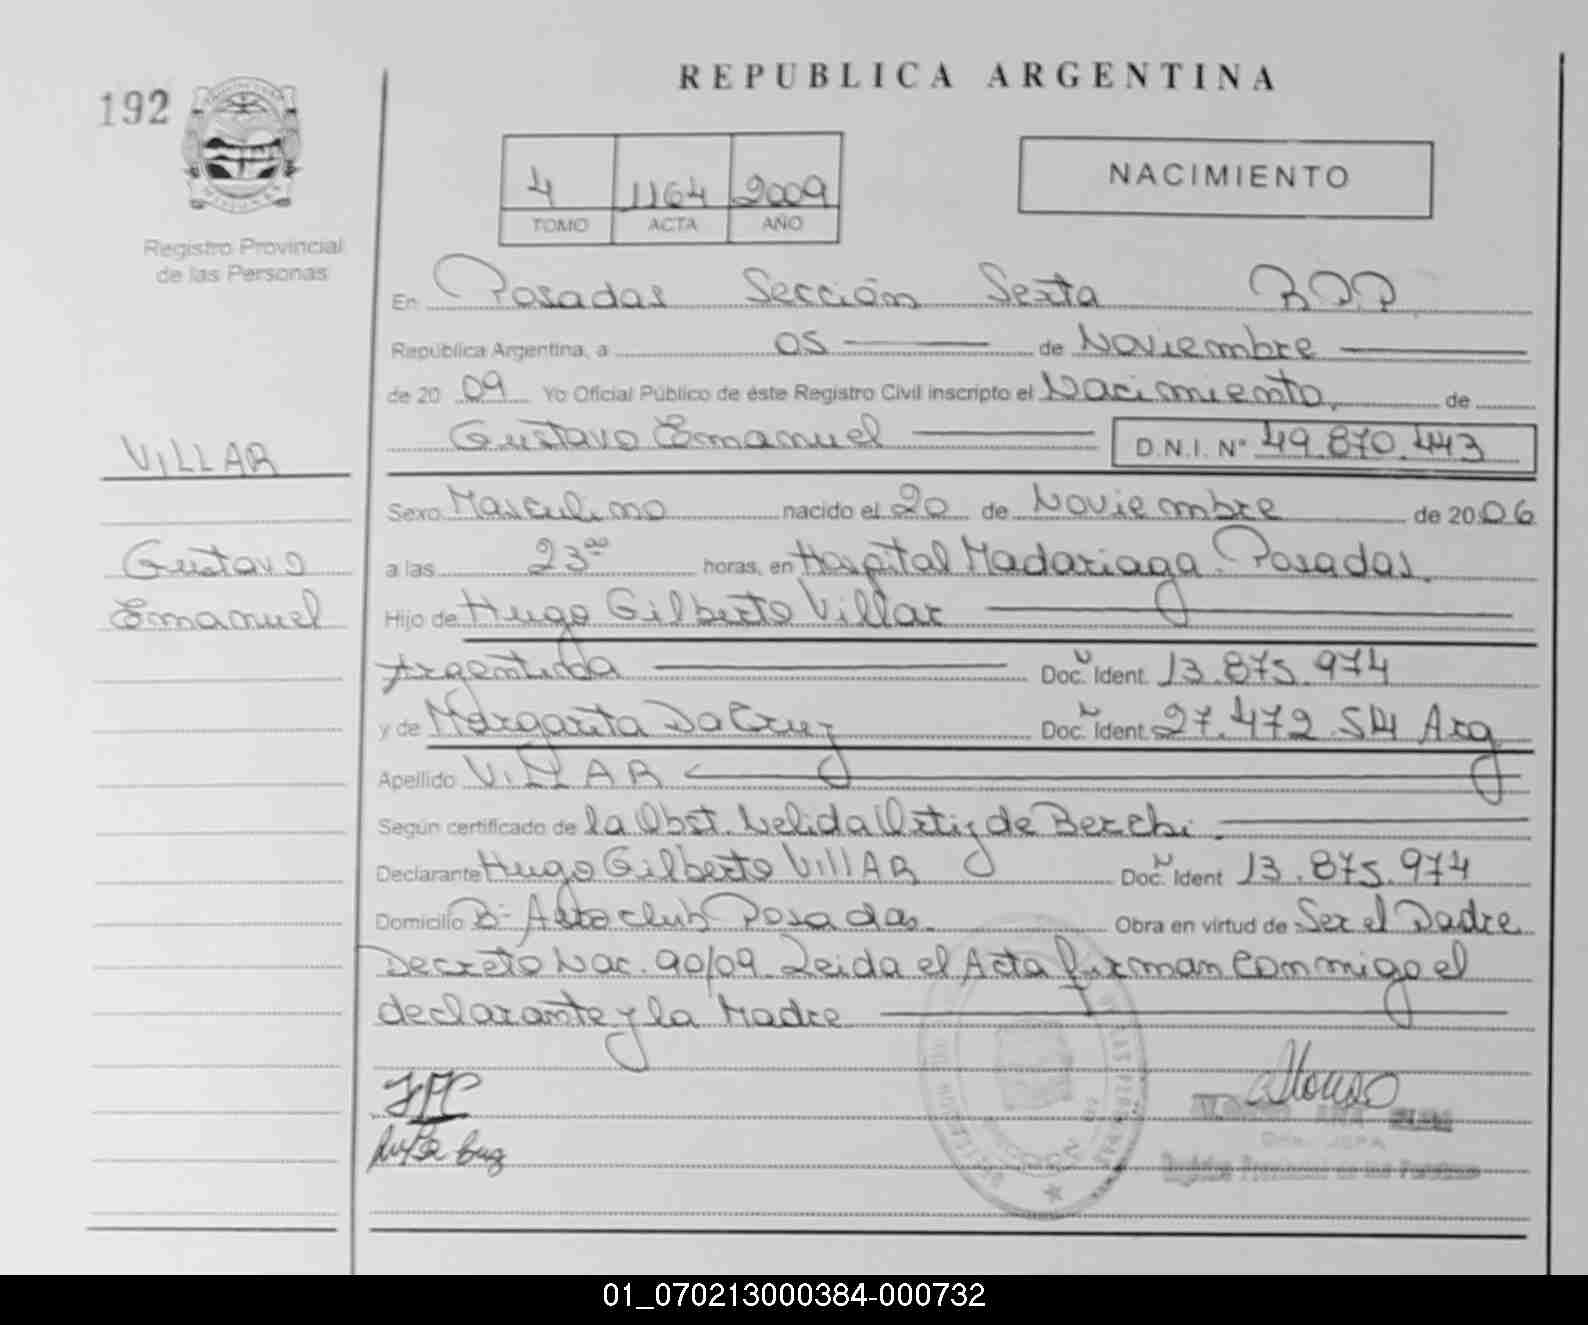 192
REPUBLICA ARGENTINA
4 1164 2009
TOMO ACTA AÑO
NACIMIENTO
Registro Provincial
de las Personas
En Posadas Sección Sexta RPP
República Argentina, a 05 de Noviembre
de 2009 Yo Oficial Público de éste Registro Civil inscripto el Nacimiento de
Gustavo Emanuel D.N.I. N° 49.870.443
VILLAR
Gustavo
Emanuel
Sexo Masculino nacido el 20 de Noviembre de 2006
a las 23°° horas, en Hospital Madariaga. Posadas.
Hijo de Hugo Gilberto Villar
Argentino Doc. Ident. 13.875.974
y de Margarita Da Cruz Doc. Ident. 27.472.514 Arg
Apellido VILLAR
Según certificado de la Obst. Nelida Ortiz de Berchi.
Declarante Hugo Gilberto VillAR Doc. Ident 13.875.974
Domicilio B- Autoclub Posadas. Obra en virtud de Ser el Padre
Decreto Nac. 90/09. Leida el Acta firman conmigo el
declarante y la Madre
Alonso
ANA
JEFA
Registro Provincial de las Personas
01_070213000384-000732